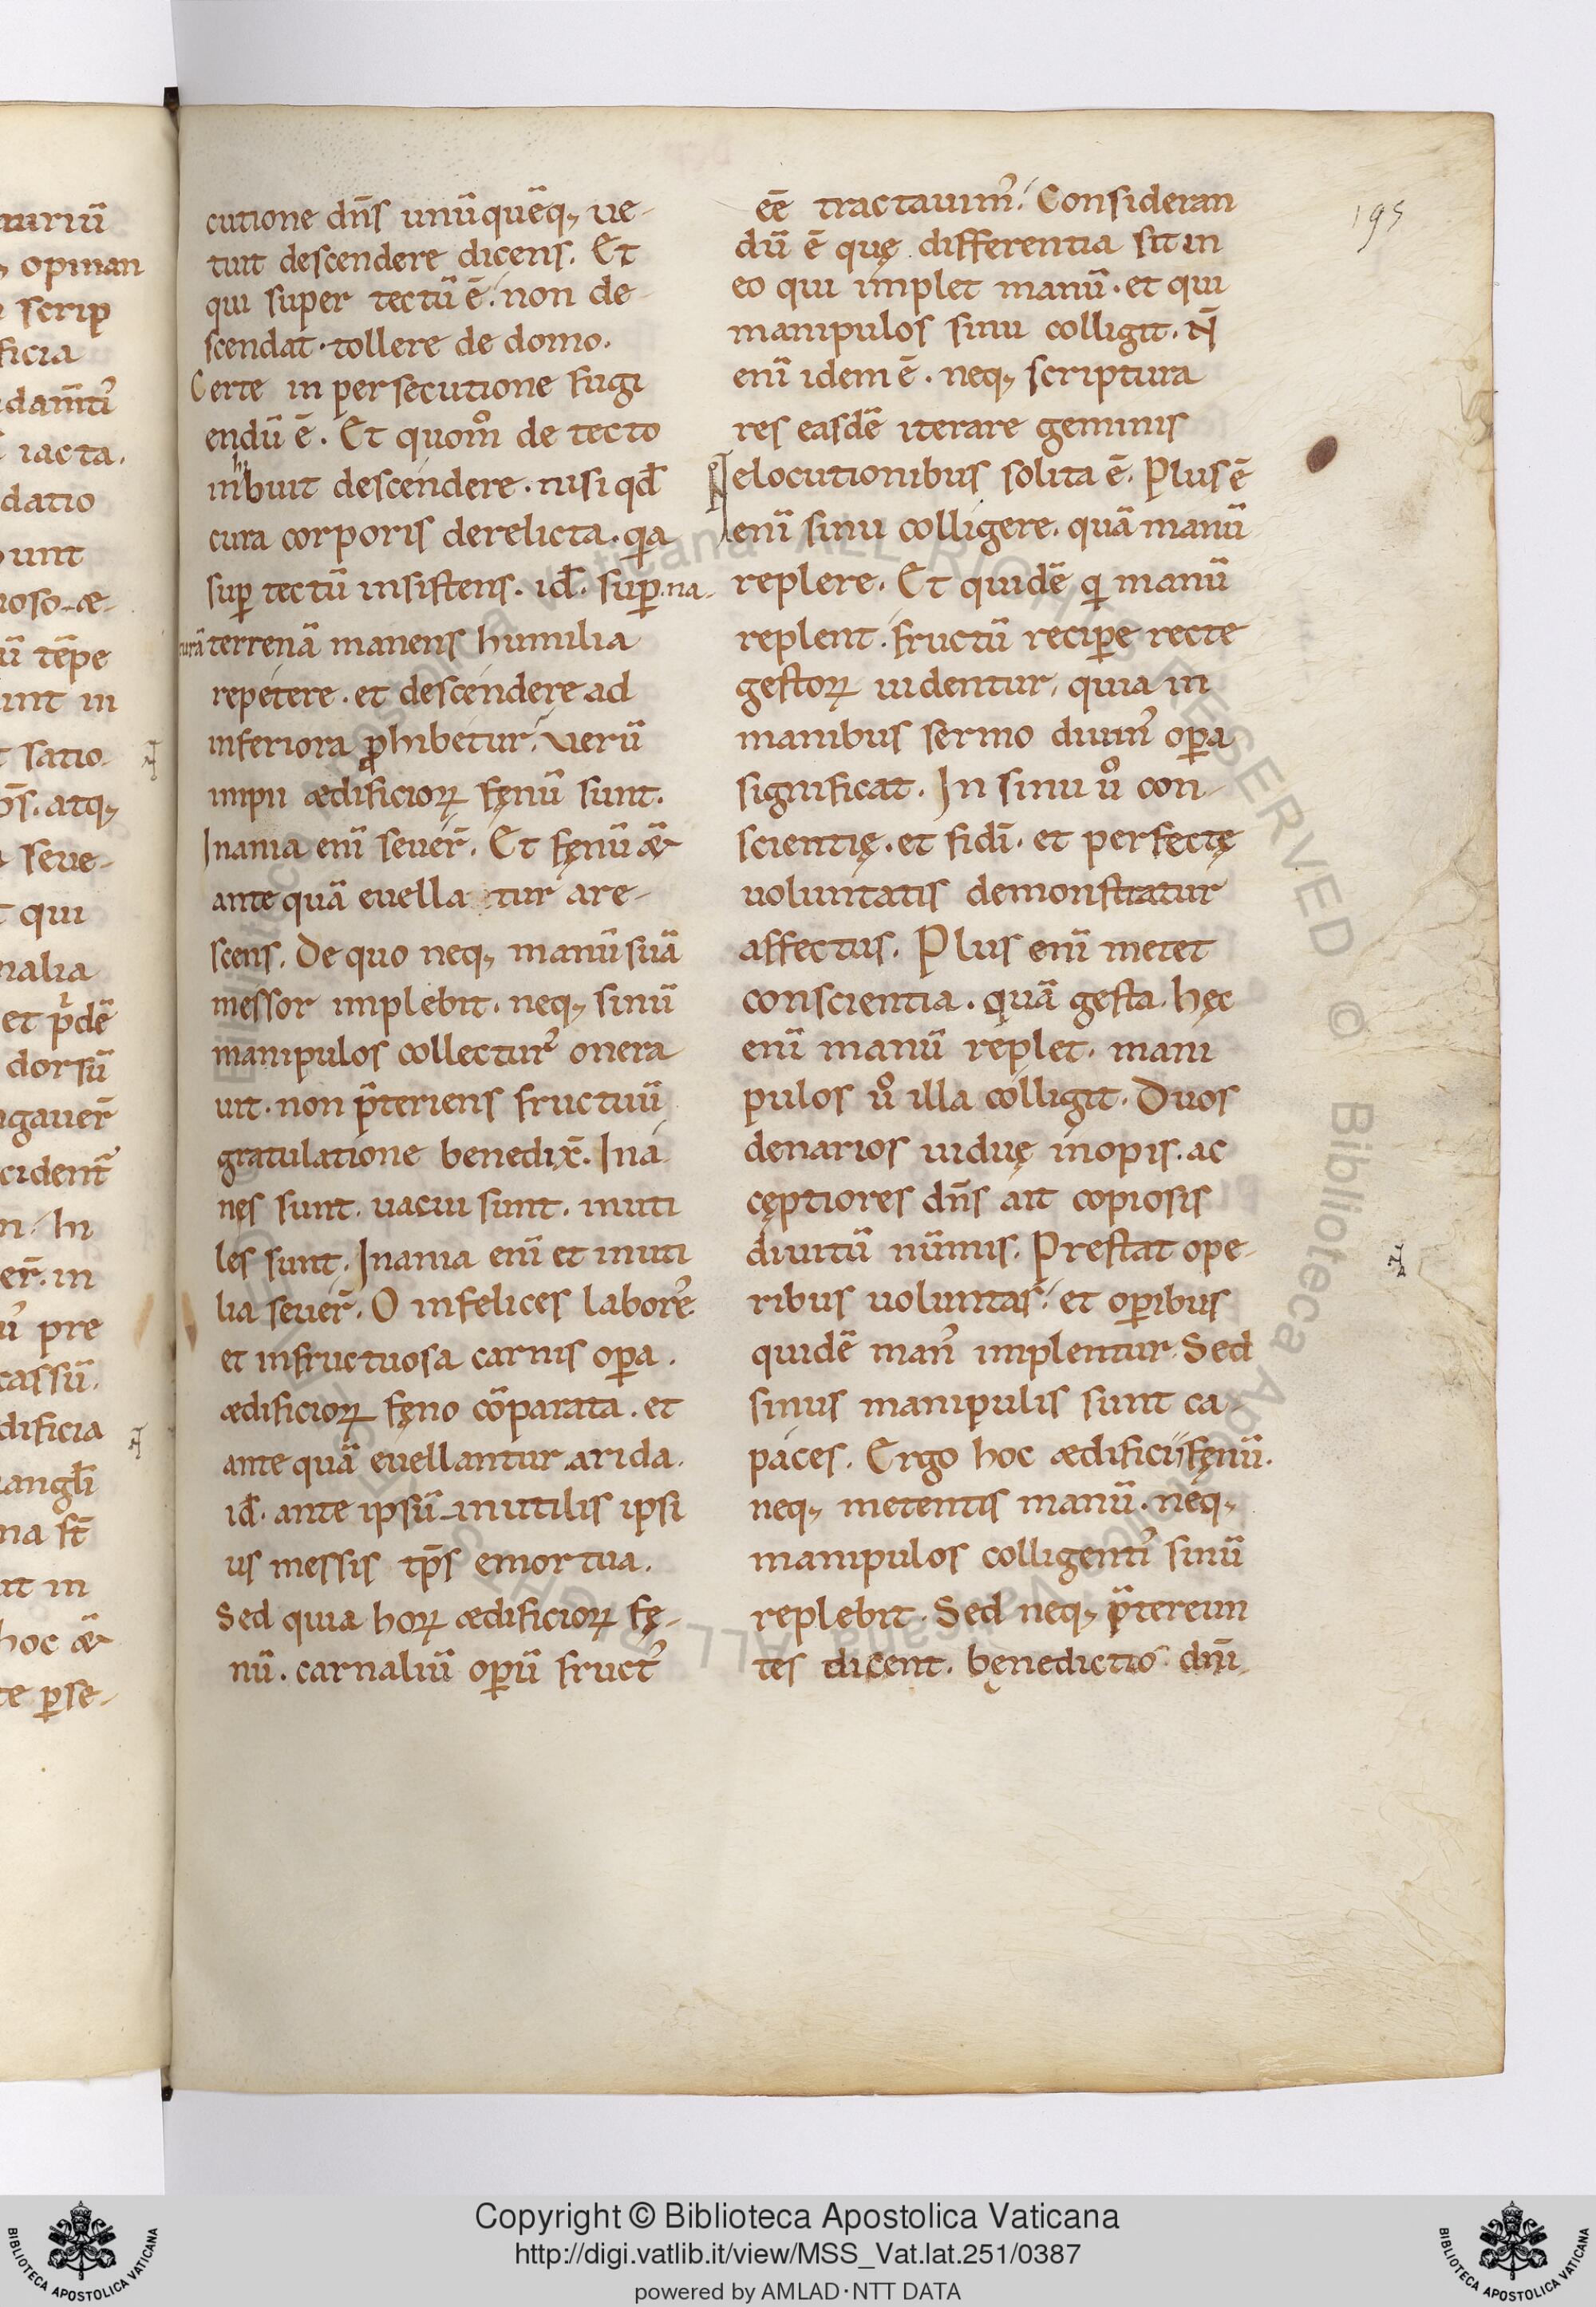 turiũ
⁊ opinan
scrip
ficia
dam̃tꝰ
iacta.
datio
unt
uoso æ-
ũ tẽpe
unt in
satio
p̃s. atq;
seue-
qui
nalia
et p̃dẽ
dorsũ
gauer̃
cident̃
hi
er̃. in
pre
cassũ.
dificia
angl̃i
na st̃
it in
hoc æ̃
te ꝑse-
cutione dñs unũquẽq; ue-
tuit descendere dicens. Et
qui super tectũ ẽ. non de-
scendat. tollere de domo.
Certe in persecutione fugi
endũ ẽ. Et quom̊ de tecto
inhibuit descendere. nisi qđ
cura corporis derelicta. qa
suꝑ tectũ insistens. iđ. suꝑ na-
turã terrenã manens humilia
repetere. et descendere ad
inferiora ꝓhibetur. Verũ
impii ædificioꝝ fęnũ sunt.
Inania enĩ seuer̃. Et fęnũ æ̃
ante quã euella tur are-
scens. De quo neq; manũ suã
messor implebit. neq; sinũ
manipulos collecturꝰ onera
uit. non p̃teriens fructuũ
gratulatione benedix̃. Ina
nes sunt. uacui sunt. inuti
les sunt. Inania enĩ et inuti
lia seuer̃. O infelices laborẽ
et infructuosa carnis oꝑa.
ædificioꝝ fęno cõparata. et
ante quã euellantur arida.
iđ. ante ipsũ inutilis ipsi
us messis tp̃s emortua.
Sed quia hoꝝ ædificioꝝ fę-
nũ. carnaliũ oꝑũ fructꝰ
ẽe tractauimꝰ. Consideran
dũ ẽ quę differentia sit in
eo qui implet manũ. et qui
manipulos sinu colligit. Ñ
enĩ idem ẽ. neq; scriptura
res easdẽ iterare geminis
elocutionibus solita ẽ. Plus ẽ
enĩ sinu colligere. quã manũ
replere. Et quidẽ q manũ
replent. fructũ reciꝑe recte
gestoꝝ uidentur, quia in
manibus sermo diuinꝰ oꝑa
significat. In sinu ů con-
scientię. et fidĩ. et perfectę
uoluntatis demonstratur
affectus. Plus enĩ metet
conscientia. quã gesta. hęc
enĩ manũ replet. mani
pulos ů illa colligit. Duos
denarios uiduę inopis. ac
cęptiores dñs ait copiosis
diuitũ nũmis. Prestat ope-
ribus uoluntas. et oꝑibus
quidẽ manꝰ implentur. Sed
sinus manipulis sunt ca-
paces. Ergo hoc ædificii fęnũ.
neq; metentis manũ. neq;
manipulos colligentꝰ sinũ
replebit. Sed neq; p̃tereun
tes dicent. benedictio dñi
195
Copyright © Biblioteca Apostolica Vaticana
http://digi.vatlib.it/view/MSS_Vat.lat.251/0387
powered by AMLAD·NTT DATA
BIBLIOTECA APOSTOLICA VATICANA
BIBLIOTECA APOSTOLICA VATICANA